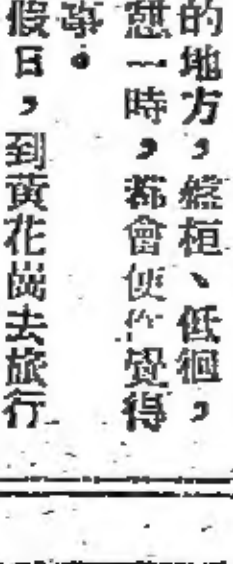 的地方,盤桓、低徊,
憩一時,都會使你覺得
寧。
假日,到黃花崗去旅行